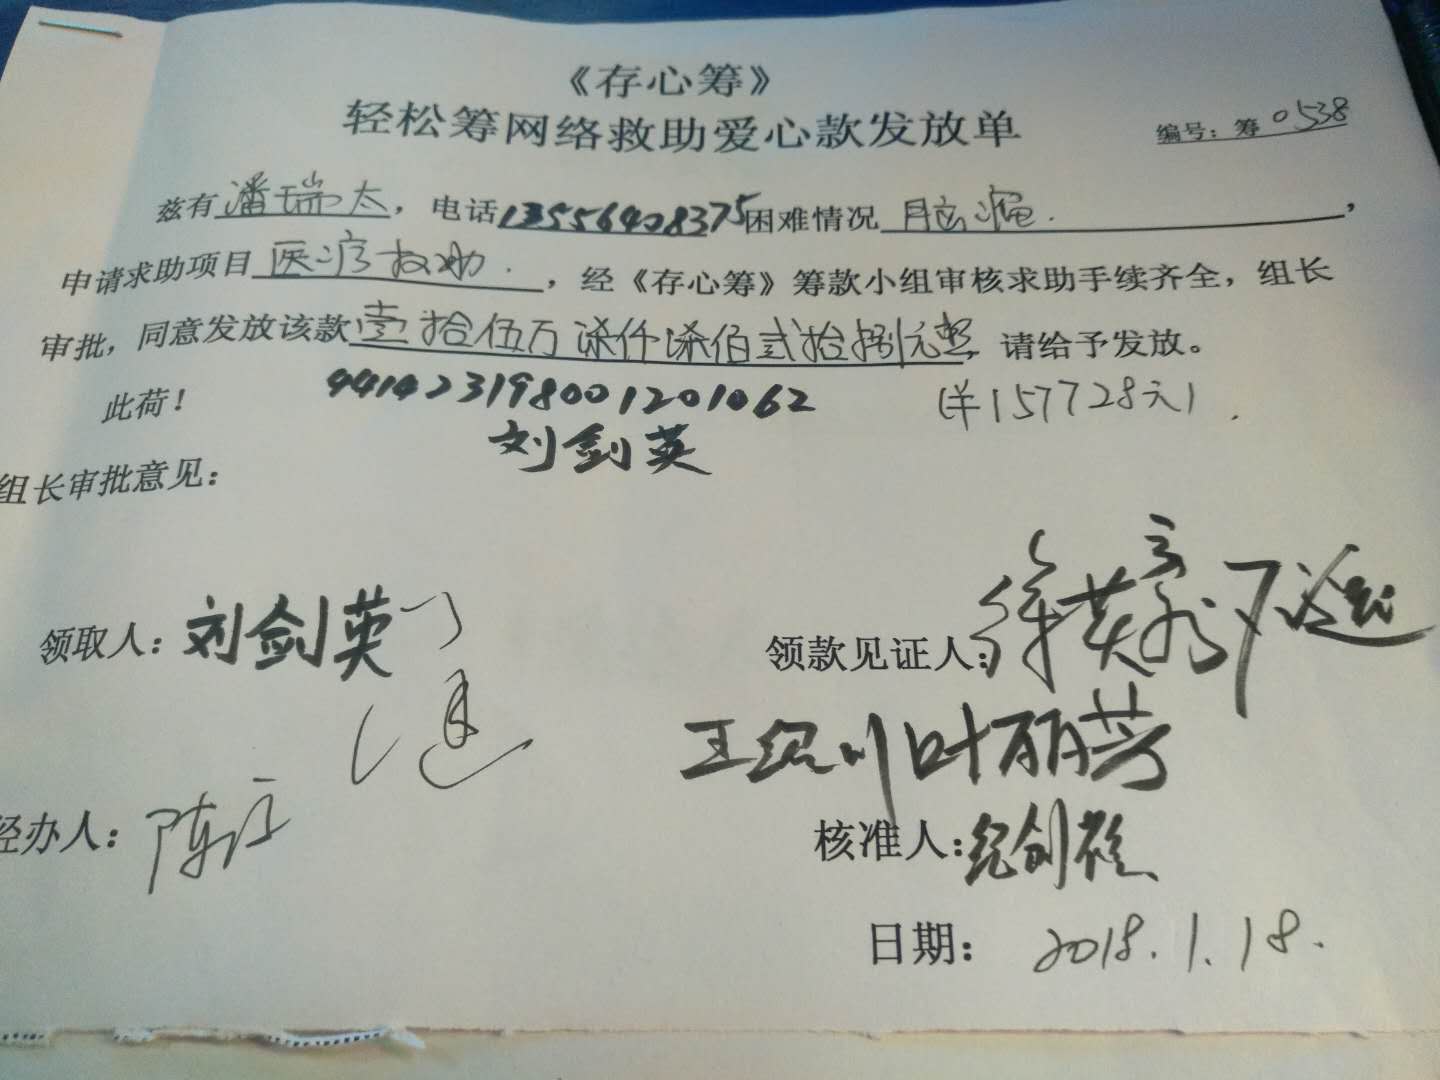 《存心筹》
轻松筹网络救助爱心款发放单
编号：筹0538
兹有潘瑞太，电话13556408375困难情况脑瘤.，
申请求助项目医疗救助.，经《存心筹》筹款小组审核求助手续齐全，组长
审批，同意发放该款壹拾伍万柒仟柒佰贰拾捌元整，请给予发放。
此荷！
441423198001201062
(¥157728元).
刘剑英
组长审批意见：
领取人：刘剑英
领款见证人：
王纪川 叶丽芳
经办人：
核准人：
日期：2018.1.18.